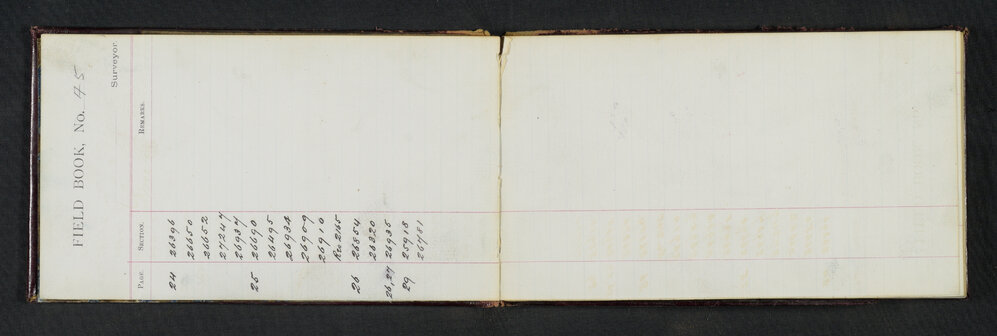 FIELD BOOK, No. 45
Surveyor
PAGE. SECTION. REMARKS.
24 26396
26650
26652
27247
26937
25 26690
26495
26934
26909
26910
Res 2165
26 26854
26320
26,27 26935
29 25918
26781